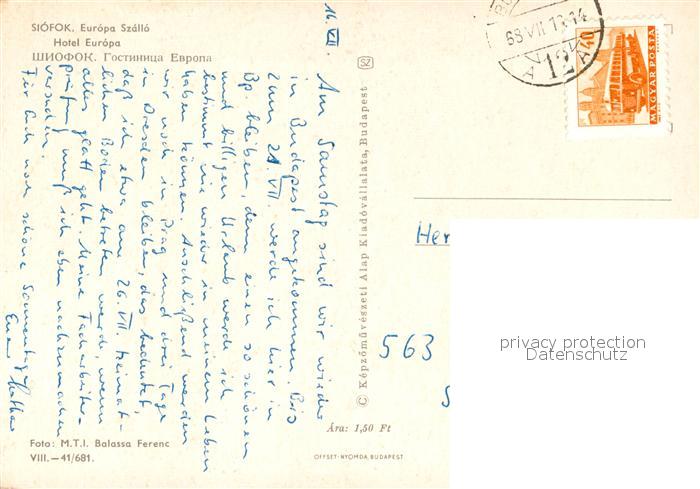 SIÓFOK. Európa Szálló
Hotel Európa
ШИОФОК. Гостиница Европа
16. VII.
Am Samstag sind wir wieder
in Budapest angekommen. Bis
zum 21. VII. werde ich hier in
Bp. bleiben, denn einen so schönen
und billigen Urlaub werde ich
bestimmt nie wieder in meinem Leben
haben können. Anschließend werden
wir noch in Prag und drei Tage
in Dresden bleiben, das bedeutet,
daß ich etwa am 26. VII. heimat-
lichen Boden betreten werde, wenn
alles glatt geht. Meine Facharbeiter-
prüfung muß ich eben nachmachen
versuchen.
Für Euch noch schöne Sonnentage
Euer
Foto: M.T.I. Balassa Ferenc
VIII.—41/681.
© Képzőművészeti Alap Kiadóvállalata, Budapest
SZ
Ára: 1,50 Ft
OFFSET-NYOMDA, BUDAPEST
68 VII 17. 14
12
40
MAGYAR POSTA
Her
563
privacy protection
Datenschutz